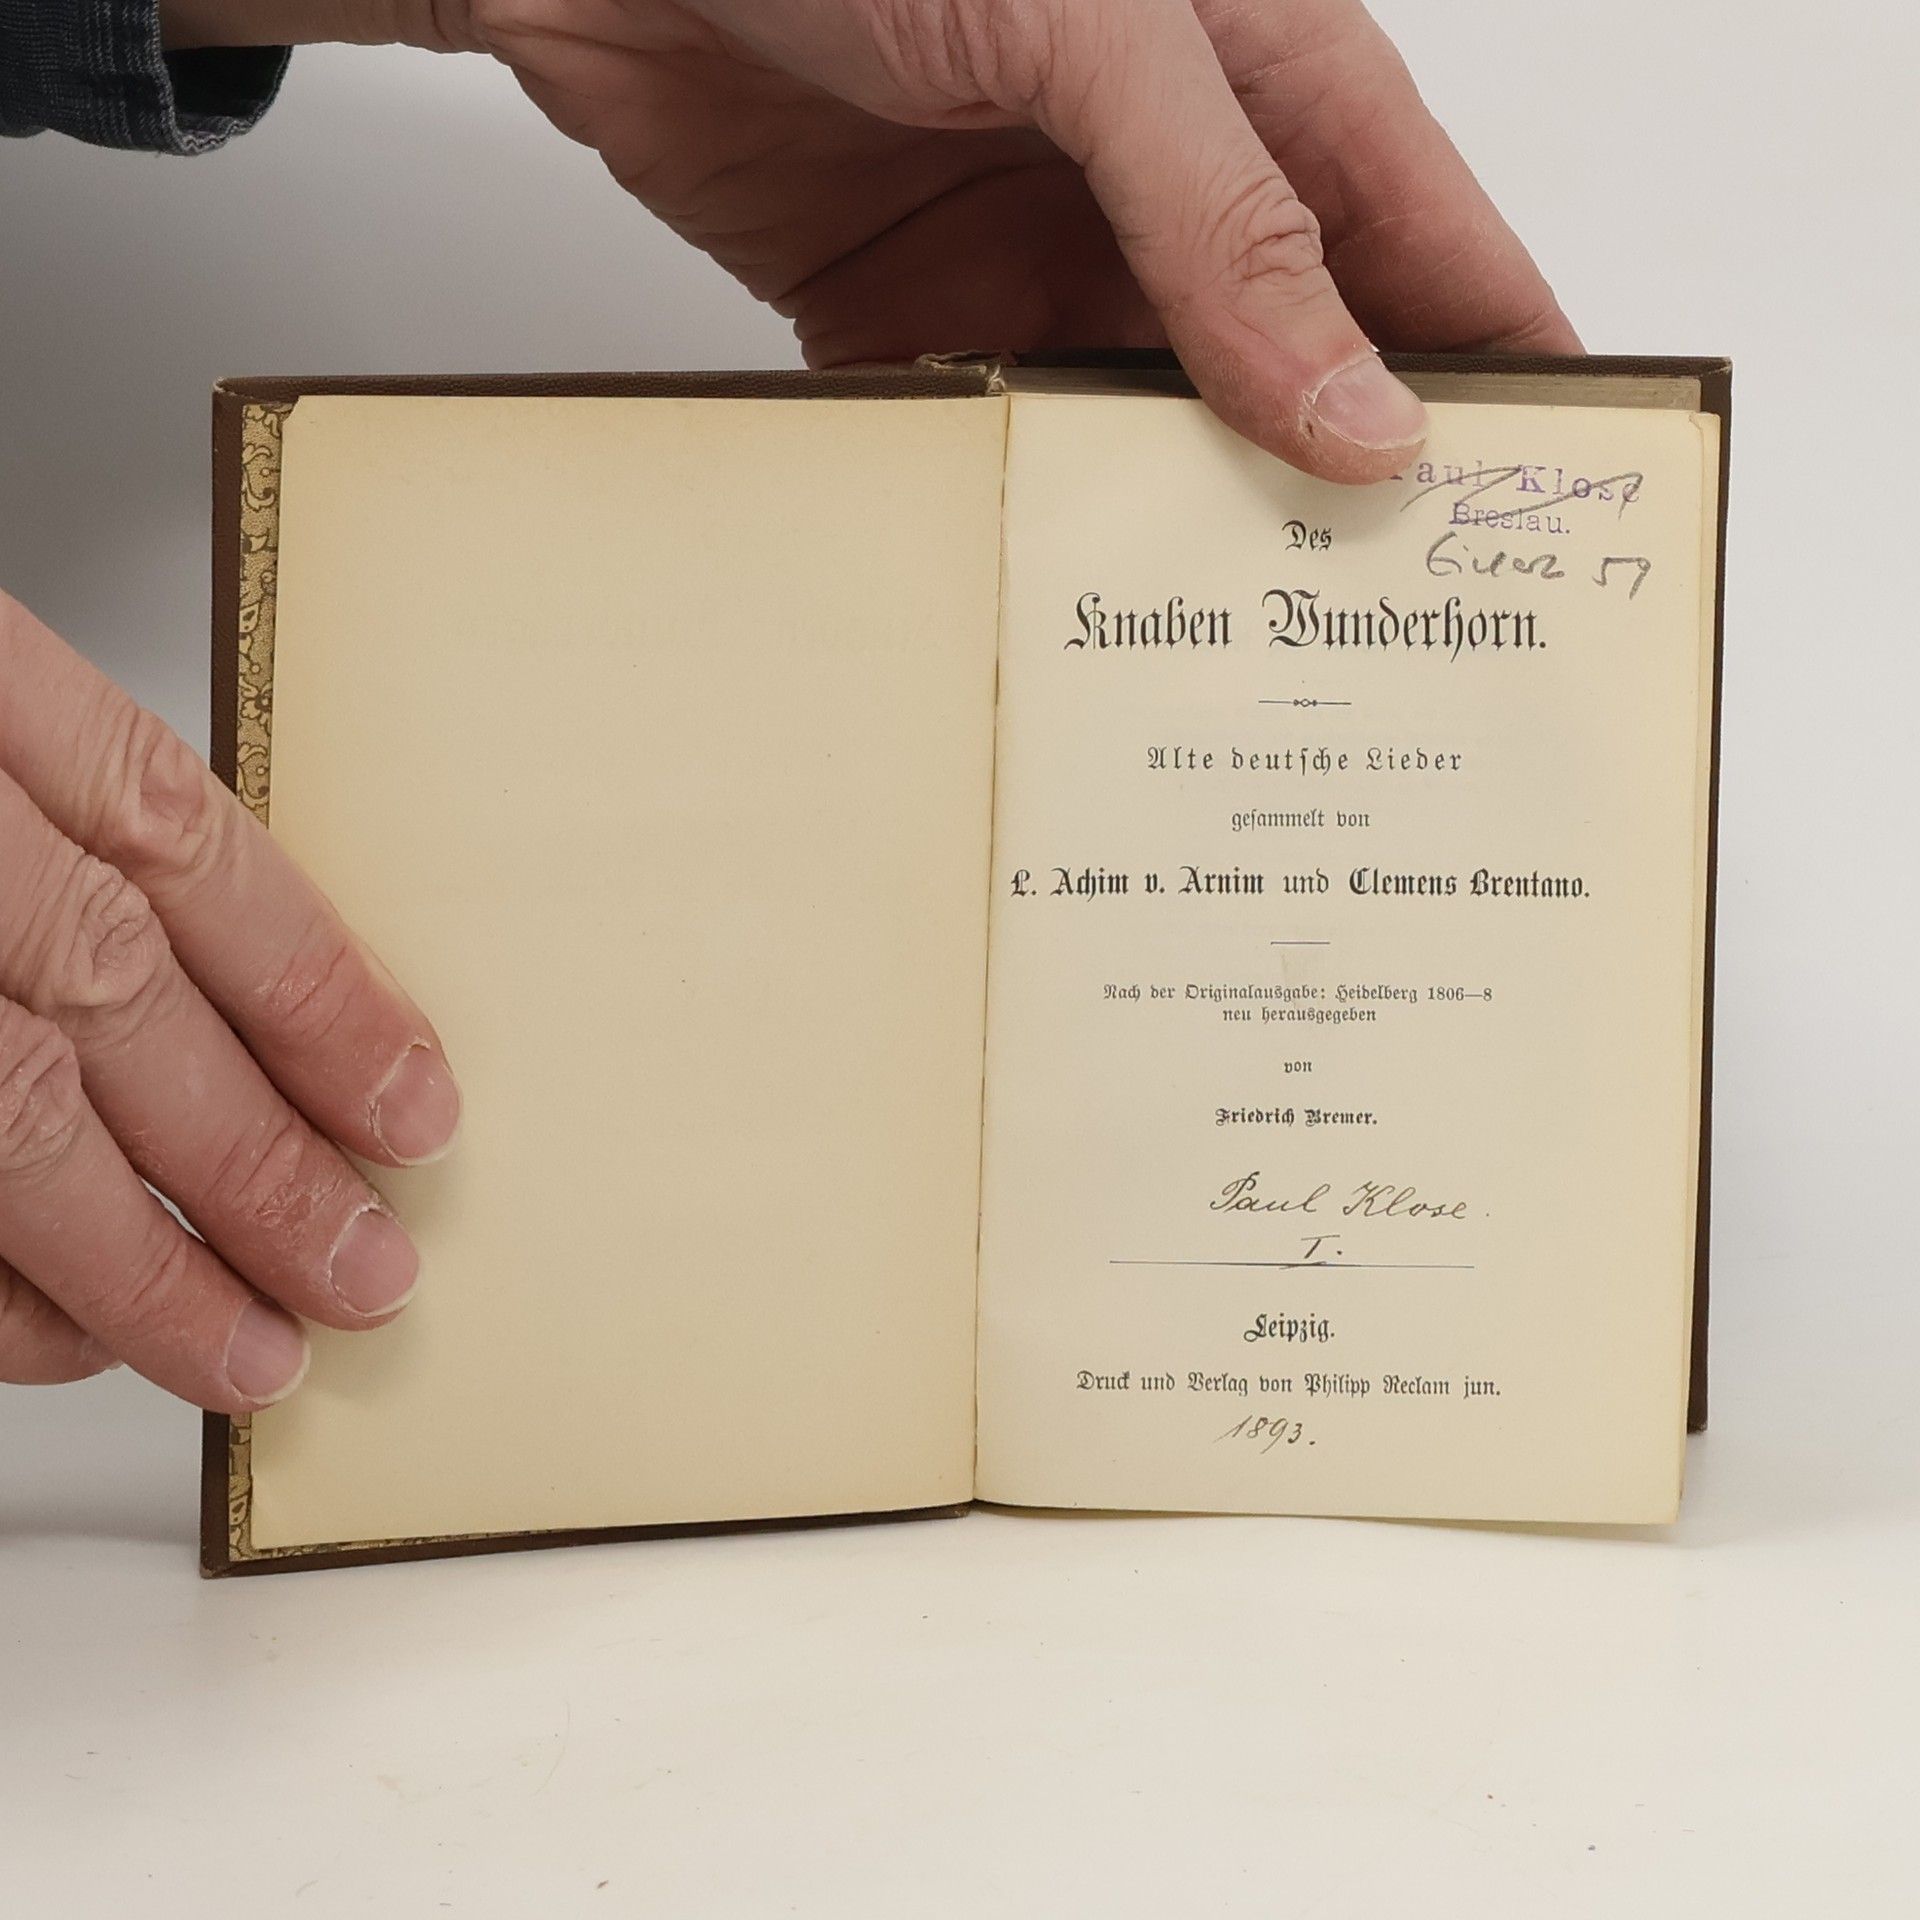 Paul Klose
Breslau.
59
Des
Knaben Wunderhorn.
Alte deutſche Lieder
geſammelt von
L. Achim v. Arnim und Clemens Brentano.
Nach der Originalausgabe: Heidelberg 1806—8
neu herausgegeben
von
Friedrich Bremer.
Paul Klose.
I.
Leipzig.
Druck und Verlag von Philipp Reclam jun.
1893.